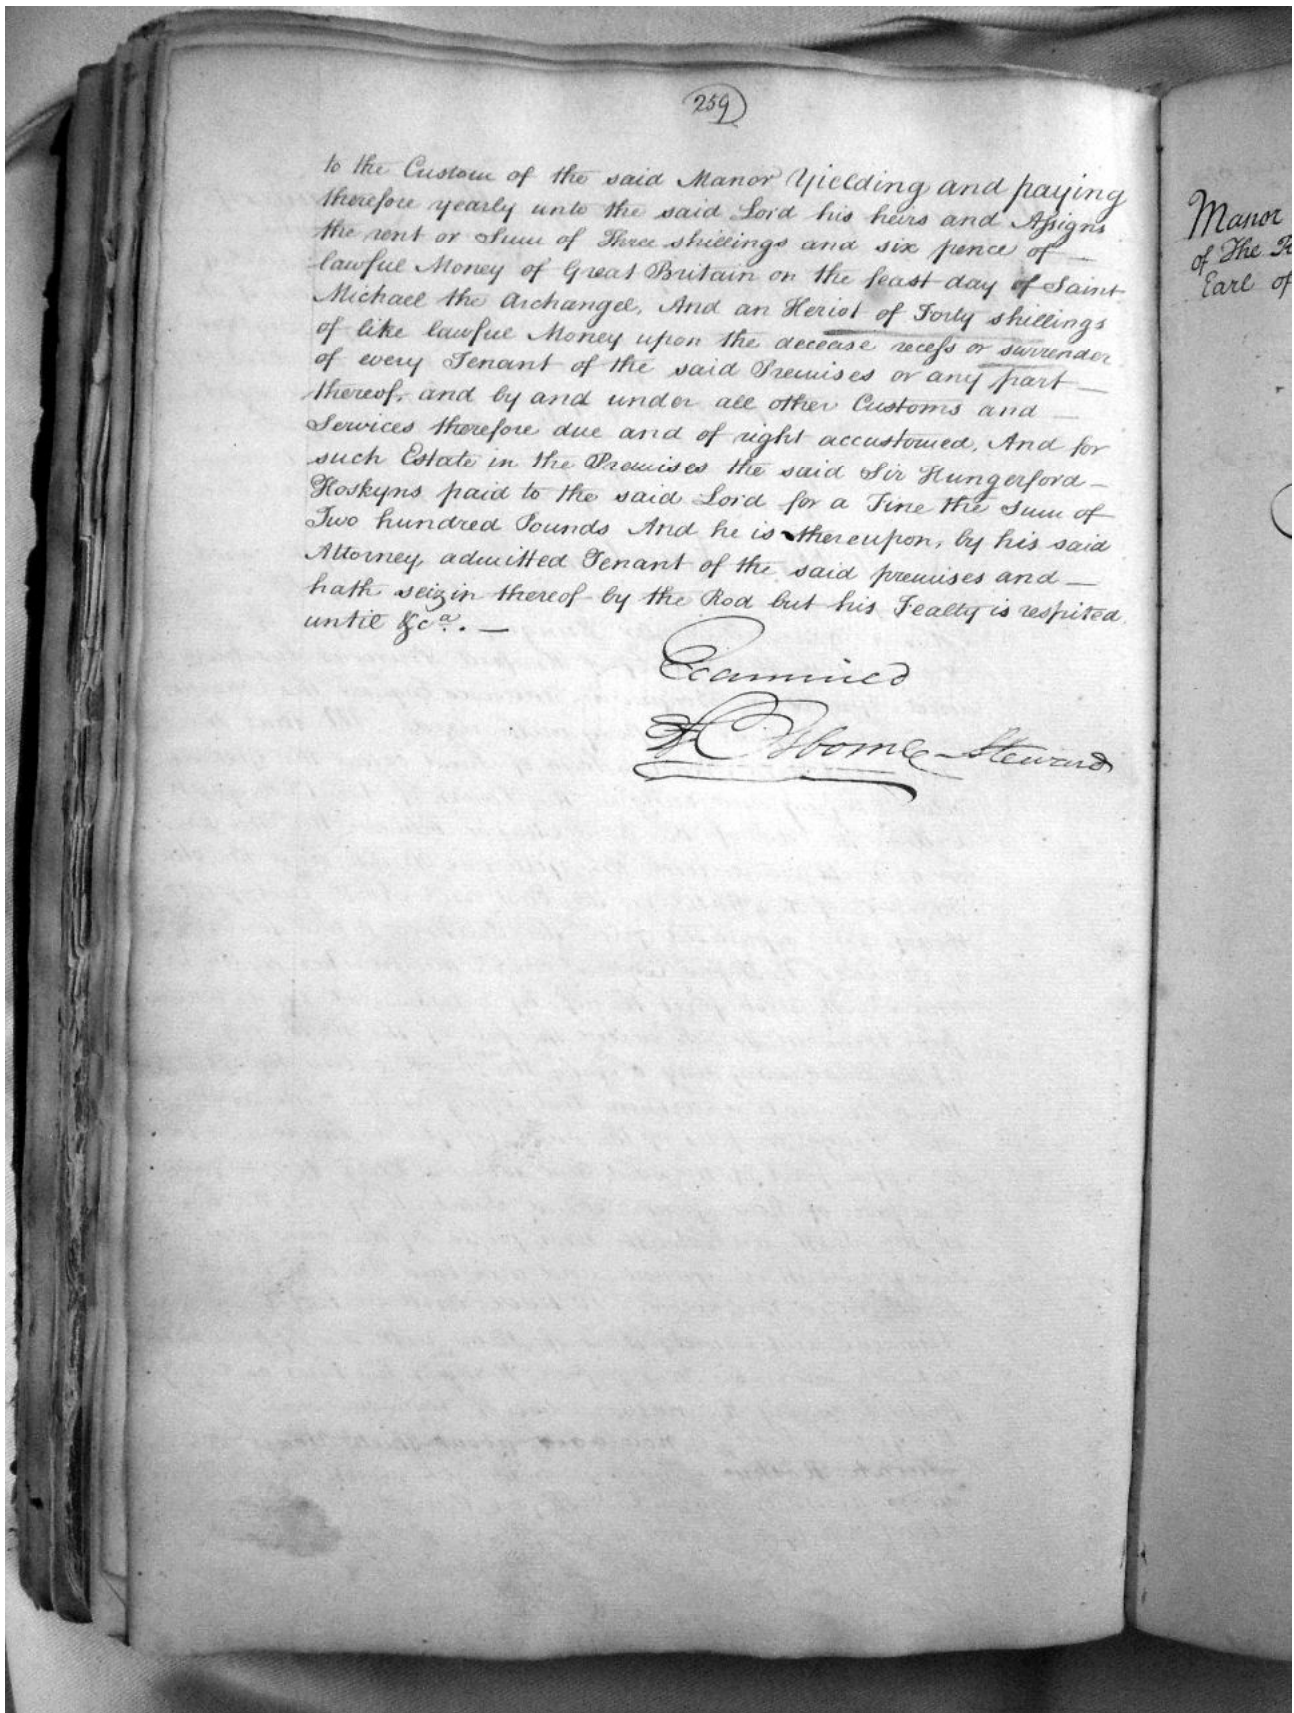 259
to the Custom of the said Manor Yielding and paying
therefore yearly unto the said Lord his heirs and Assigns
the rent or Sum of Three shillings and six pence of
lawful Money of Great Britain on the feast day of Saint
Michael the Archangel, And an Heriot of Forty shillings
of like lawful Money upon the decease recess or surrender
of every Tenant of the said Premises or any part
thereof, and by and under all other Customs and
Services therefore due and of right accustomed, And for
such Estate in the Premises the said Sir Hungerford
Hoskyns paid to the said Lord for a Fine the Sum of
Two hundred Pounds And he is thereupon, by his said
Attorney admitted Tenant of the said premises and
hath seizin thereof by the Rod but his Fealty is respited
until &ca. —
Examined
Steward
Manor
of The
Earl of